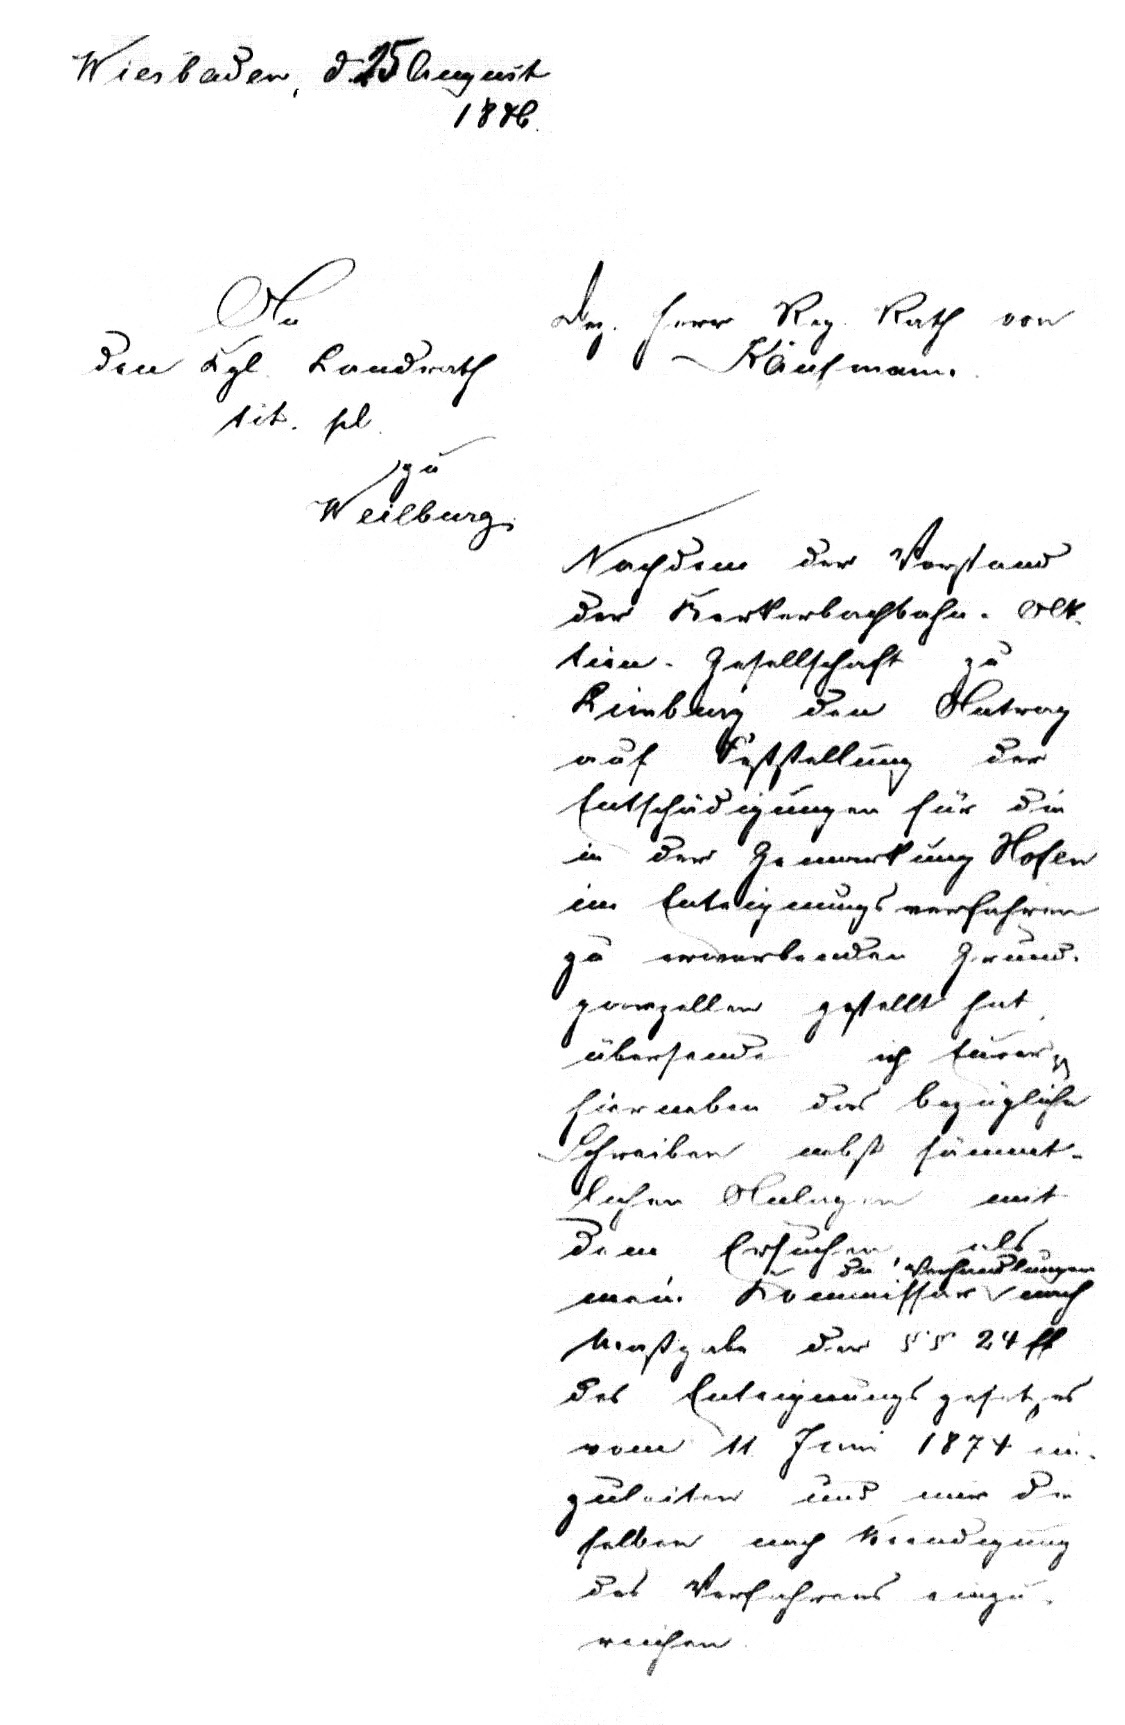 Wiesbaden, d. 25 August
1886.
An
den Kgl. Landrath
tit. pl.
zu
Weilburg.
Dez. Herr Reg. Rath von
Kaufmann.
Nachdem der Vorstand
der Kerkerbachbahn-Ak-
tien-Gesellschaft zu
Limburg den Antrag
auf Feststellung der
Entschädigungen für die
in der Gemarkung Hofen
im Enteignungsverfahren
zu erwerbenden Grund-
parzellen gestellt hat,
übersende ich Eurer
hierneben das bezügliche
Schreiben nebst sämmt-
lichen Anlagen mit
dem Ersuchen, als
die Verhandlungen
mein Kommissar nach
Maßgabe der §§ 24 ff
des Enteignungsgesetzes
vom 11 Juni 1874 ein-
zuleiten und mir die
selben nach Beendigung
des Verfahrens einzu-
reichen.